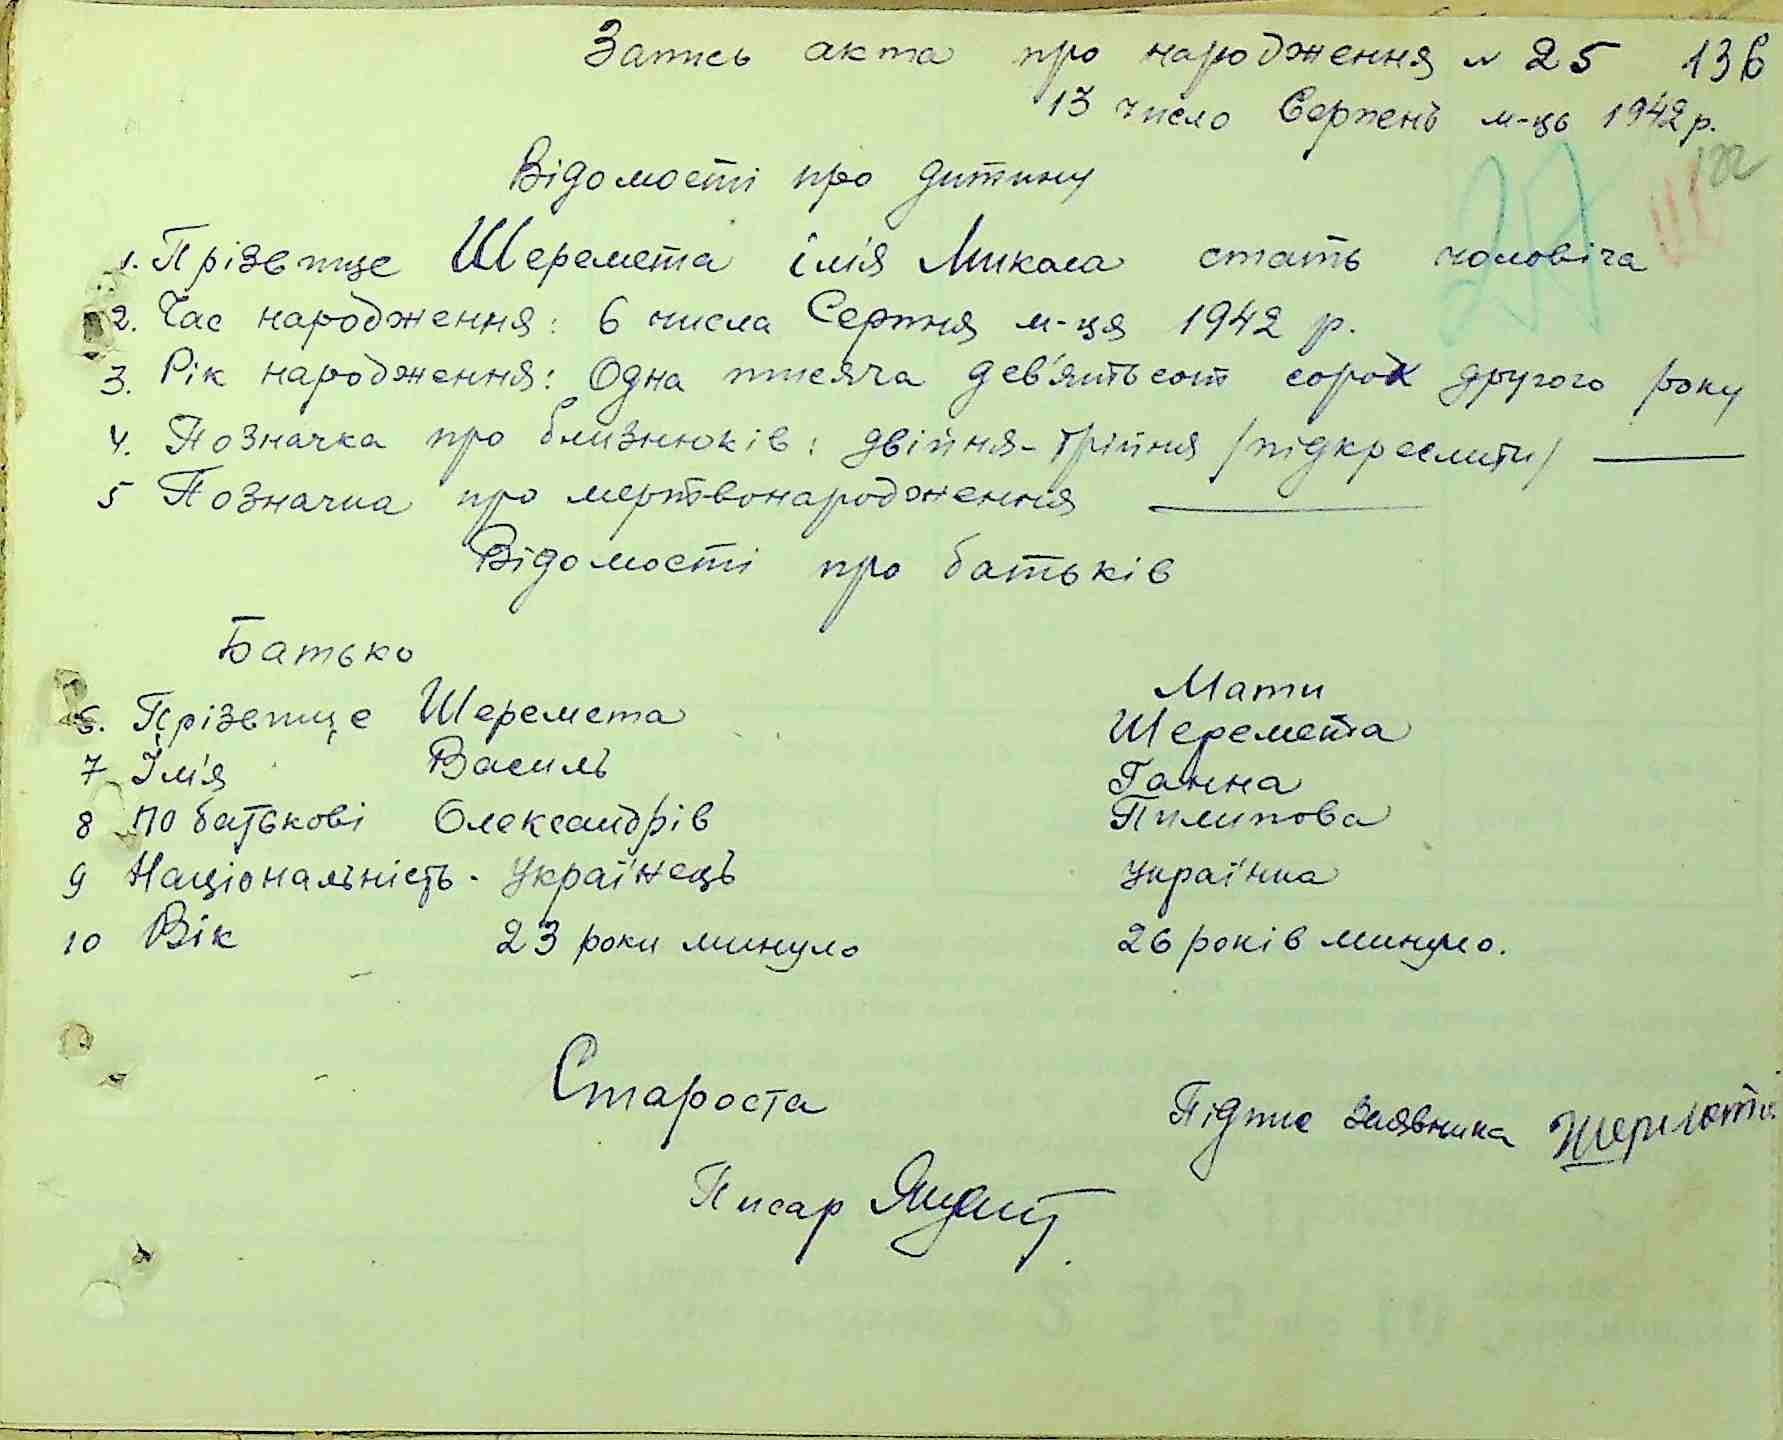 Запись акта про народження № 25 136
13 число Серпень м-ць 1942 р.
122
27
Відомості про дитину
1. Прізвище Шеремета ім'я Микола стать чоловіча
2. Час народження: 6 числа Серпня м-ця 1942 р.
3. Рік народження: Одна тисяча дев'ятьсот сорок другого року
4. Позначка про близнюків: двійня-трійня /підкреслити/ ——
5 Позначка про мертвонародження ——
Відомості про батьків
Батько
Мати
6. Прізвище Шеремета Шеремета
7 Ім'я Василь Ганна
8 по батькові Олександрів Пилипова
9 Національність. Українець Українка
10 Вік 23 роки минуло 26 років минуло.
Староста
Підпис заявника Шеремета
Писар